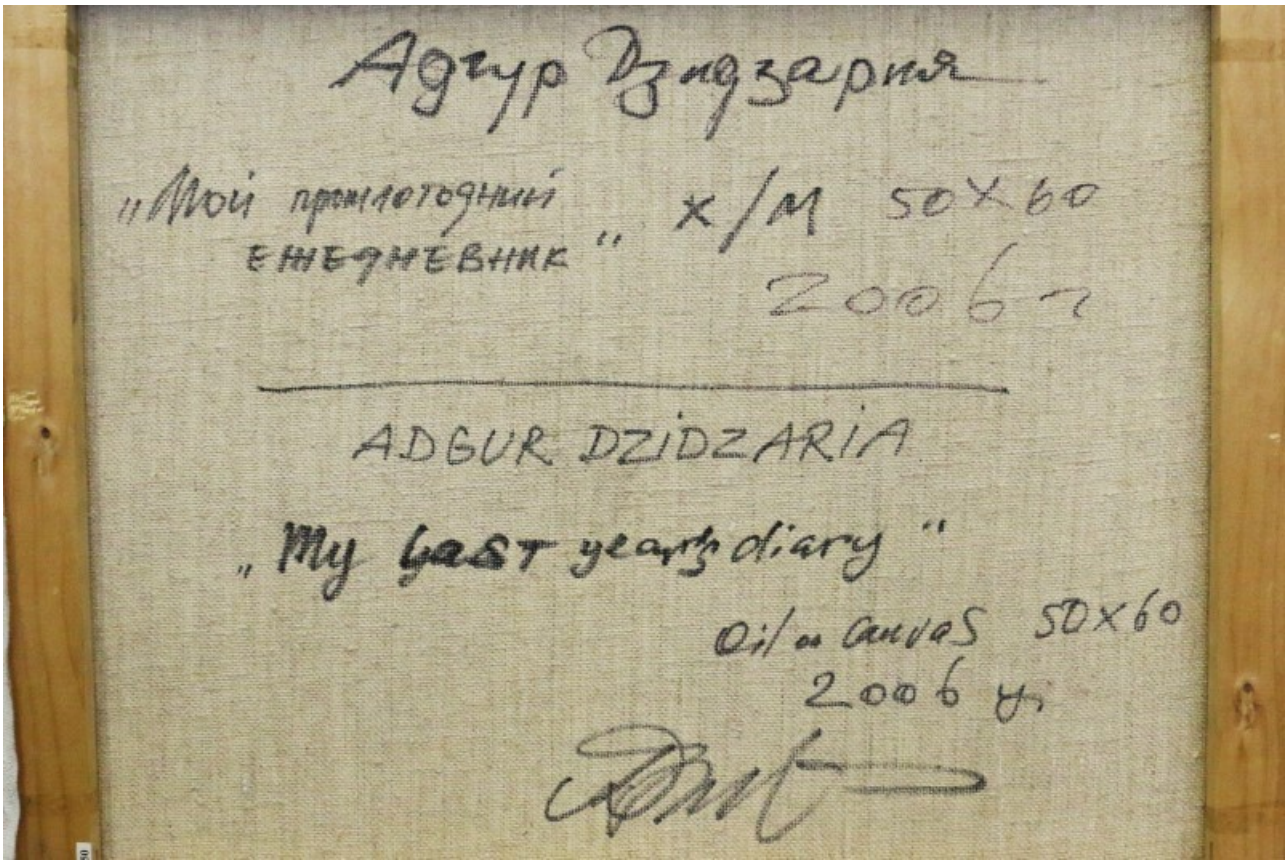 Адгур Дзидзария
„Мой прошлогодний
ежедневник“ х/м 50х60
2006 г
ADGUR DZIDZARIA
„My last year's diary“
Oil on Canvas 50x60
2006 y.